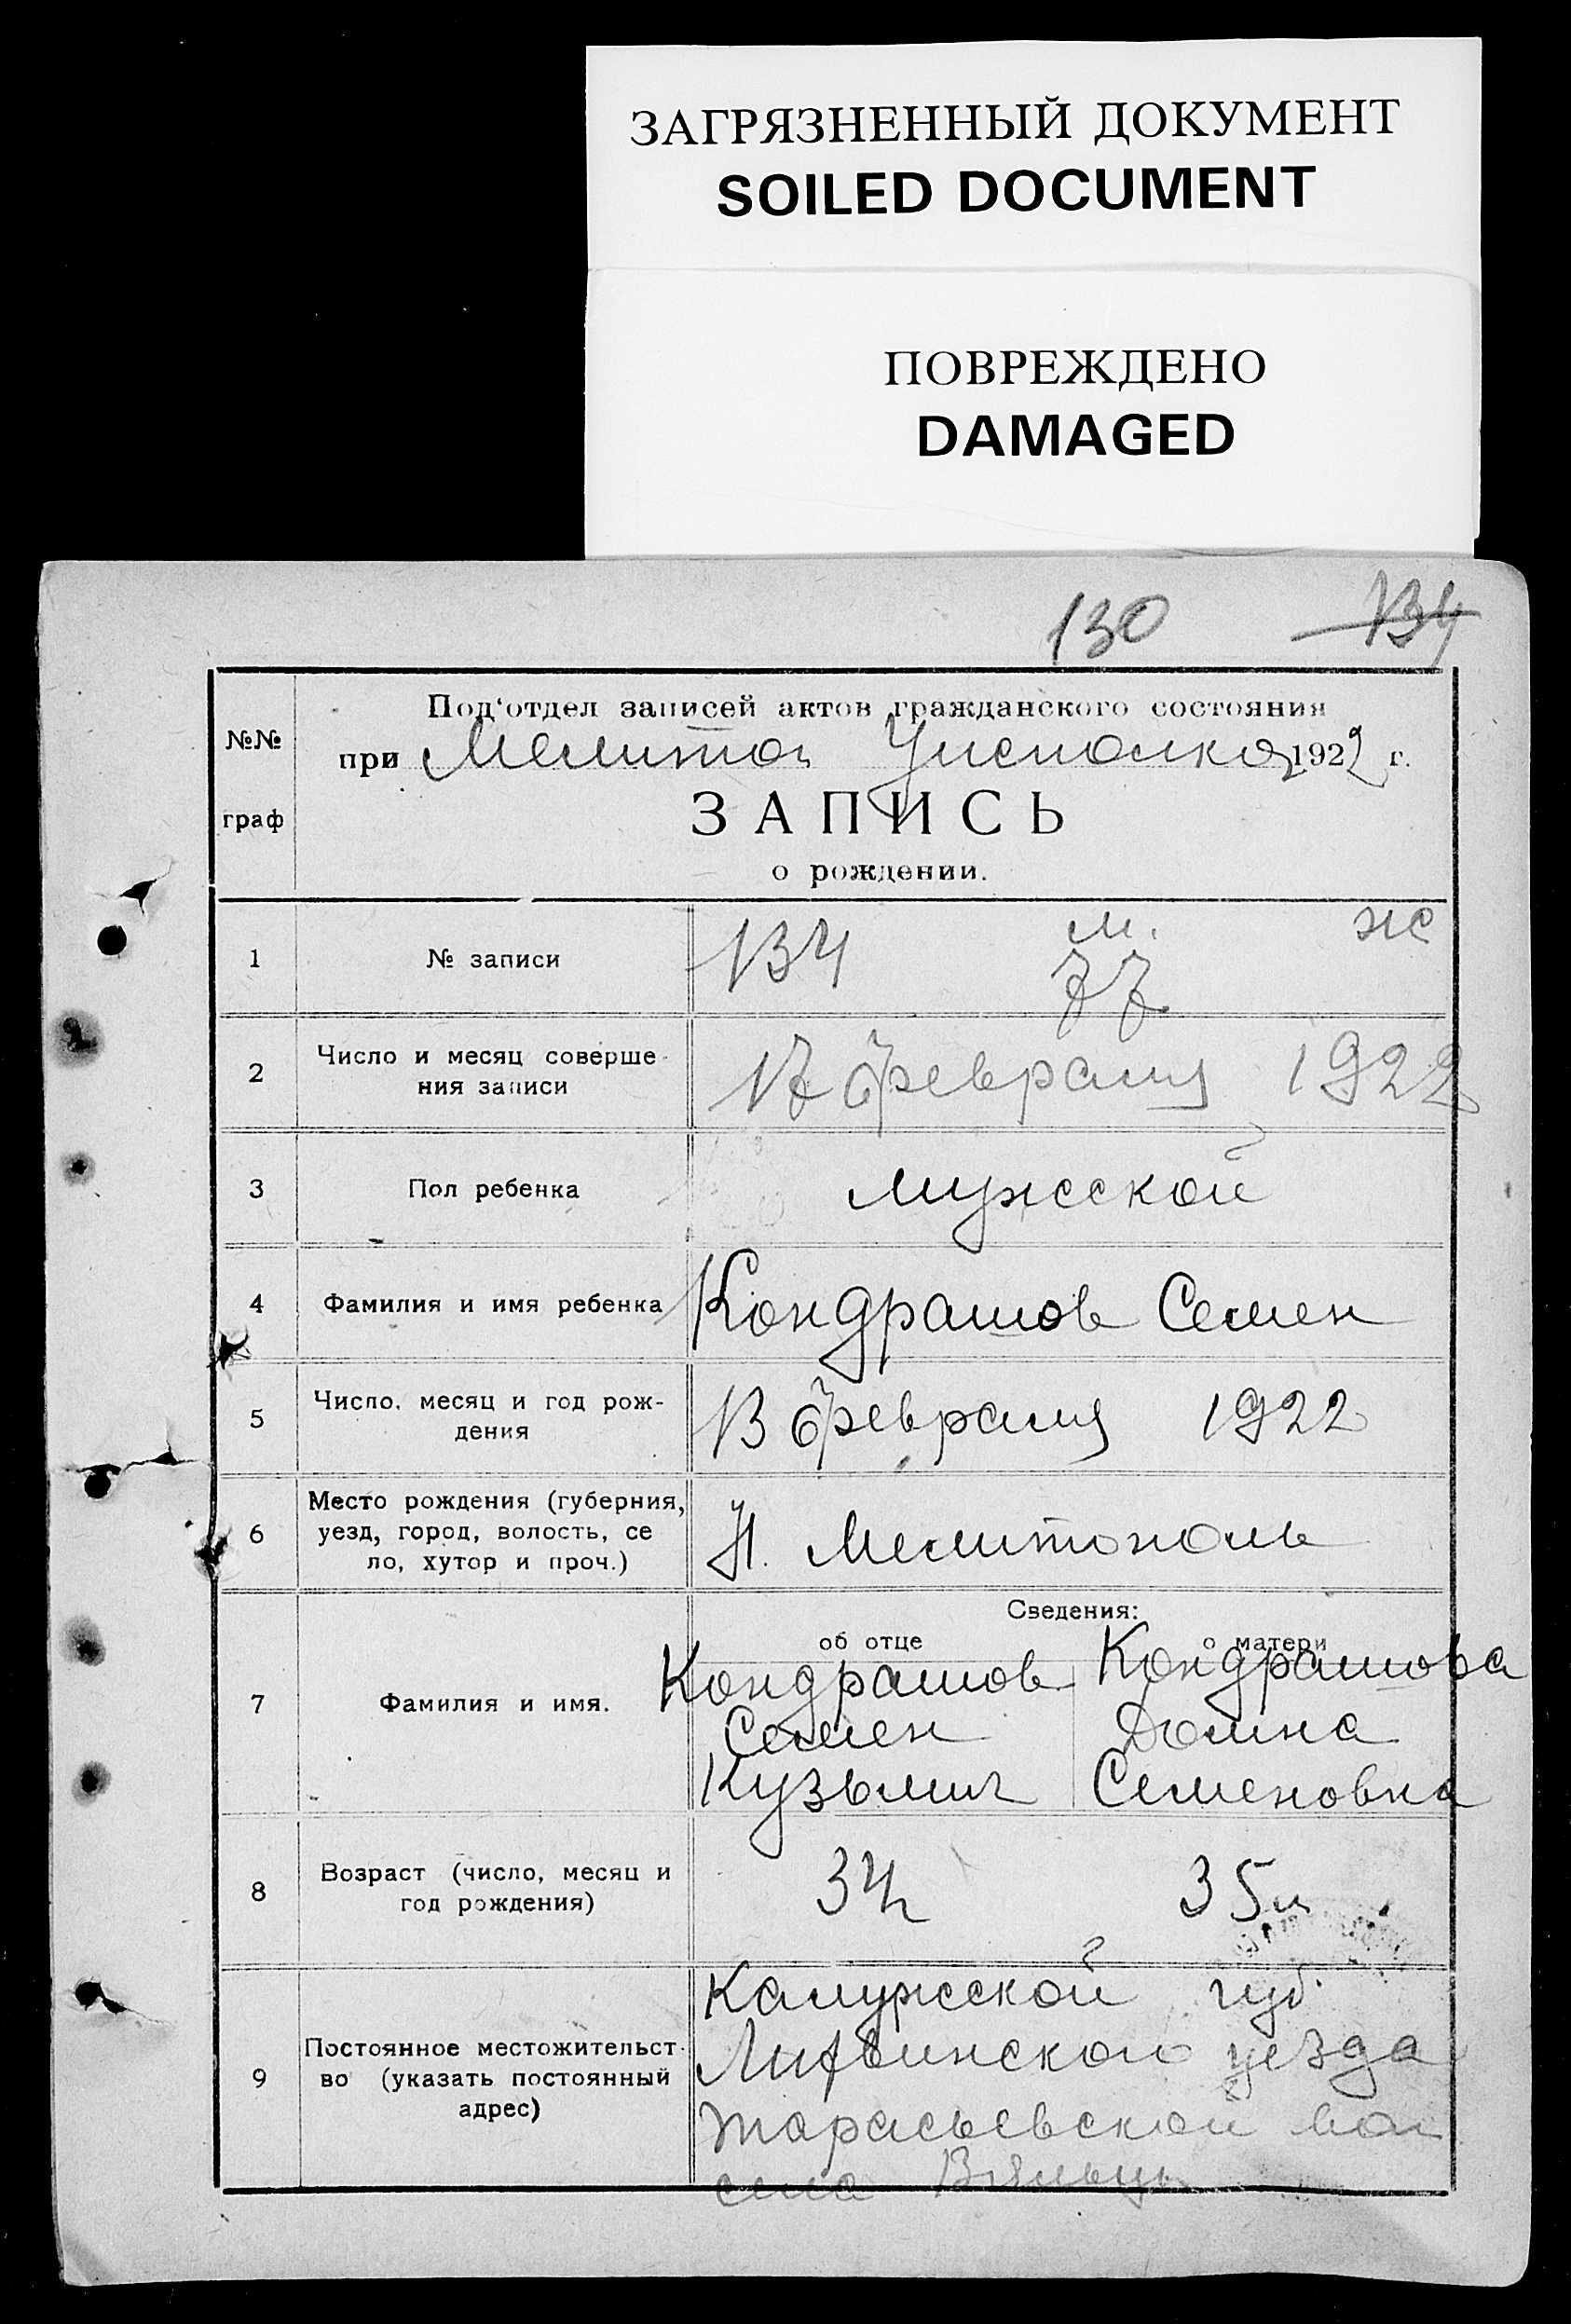 ЗАГРЯЗНЕННЫЙ ДОКУМЕНТ
SOILED DOCUMENT
ПОВРЕЖДЕНО
DAMAGED
130 134
№№ граф
Под'отдел записей актов гражданского состояния
при Мелитоп Уисполкоа 1922 г.
ЗАПИСЬ
о рождении.
1 № записи 134 м. 77 ж
2 Число и месяц соверше-
ния записи 17 февраля 1922
3 Пол ребенка мужской
4 Фамилия и имя ребенка Кондрашов Семен
5 Число, месяц и год рож-
дения 13 февраля 1922
6 Место рождения (губерния,
уезд, город, волость, се
ло, хутор и проч.) Н. Мелитополь
Сведения:
об отце о матери
7 Фамилия и имя. Кондрашов Кондрашова
Семен Домна
Кузьмич Семеновна
8 Возраст (число, месяц и
год рождения) 34 л 35 л
9 Постоянное местожительст-
во (указать постоянный
адрес)
Калужской губ.
Лихвинского уезда
Тарасьевской вол
села